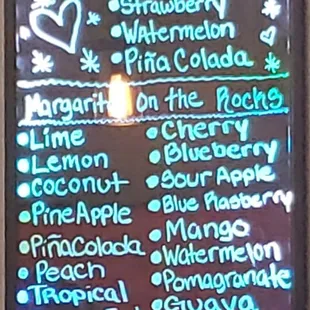 •Strawberry
•Watermelon
•Piña Colada
Margarit On the Rocks
•Lime
•Lemon
•Coconut
•PineApple
•PiñaColada
•Peach
•Tropical
•Cherry
•Blueberry
•Sour Apple
•Blue Rasberry
•Mango
•Watermelon
•Pomagranate
•Guava